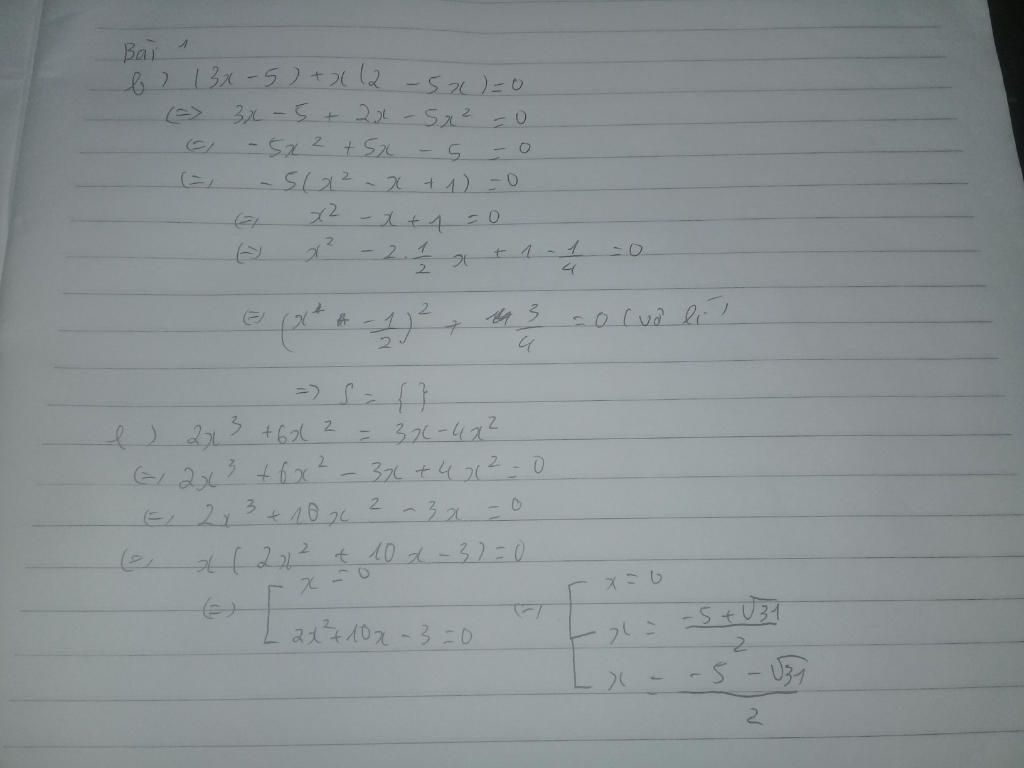 Bài 1
b) (3x - 5) + x(2 - 5x) = 0
(=> 3x - 5 + 2x - 5x² = 0
(=) -5x² + 5x - 5 = 0
(=) -5(x² - x + 1) = 0
(=) x² - x + 1 = 0
(=) x² - 2.1/2 x + 1 - 1/4 = 0
(=) (x - 1/2)² + 3/4 = 0 (vô lí)
=> S = { }
e) 2x³ + 6x² = 3x - 4x²
(=) 2x³ + 6x² - 3x + 4x² = 0
(=) 2x³ + 10x² - 3x = 0
(=) x(2x² + 10x - 3) = 0
(=) [ x = 0
2x² + 10x - 3 = 0
(=) [ x = 0
x = (-5 + √31)/2
x = (-5 - √31)/2